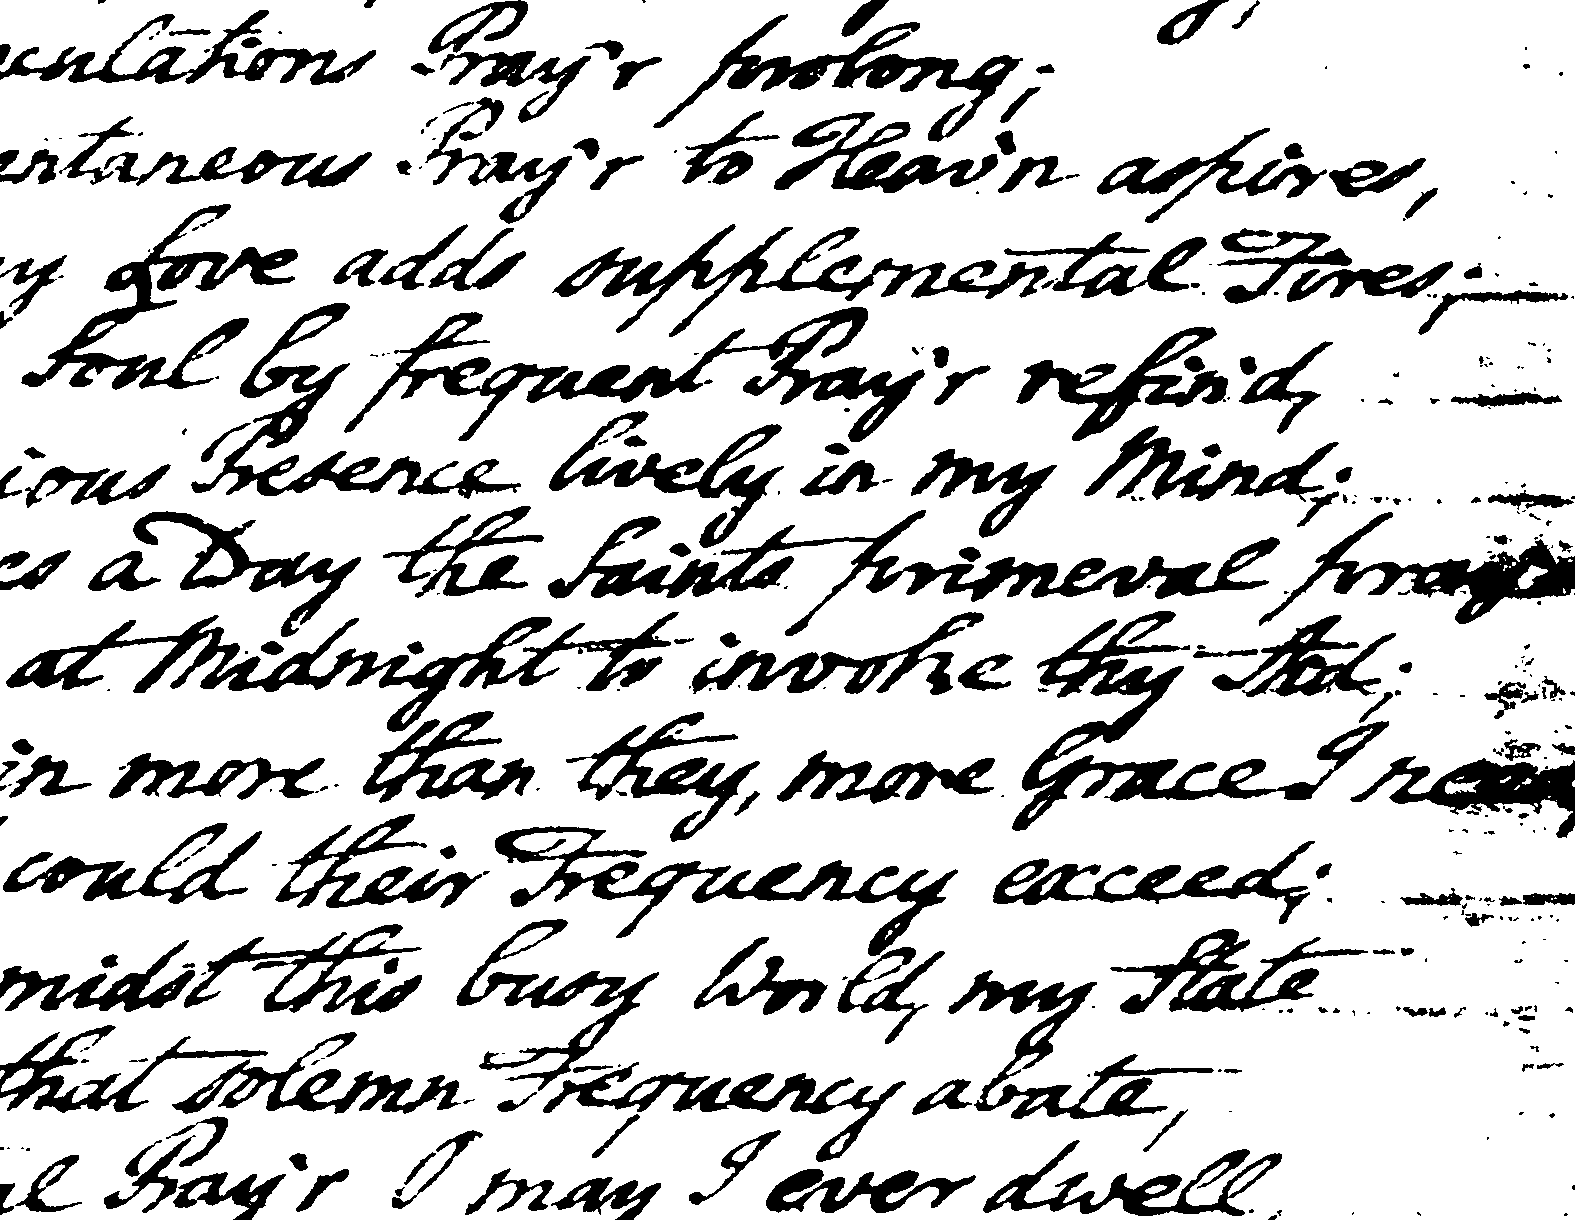 culations Pray'r prolong;
ntaneous Pray'r to Heav'n aspires,
y Love adds supplemental Fires;
Soul by frequent Pray'r refin'd,
ious Presence lively in my Mind;
es a Day the Saints primeval pray'd
at Midnight to invoke thy Aid;
in more than they, more Grace I need
could their Frequency exceed;
midst this busy World, my State
that solemn Frequency abate,
al Pray'r I may I ever dwell